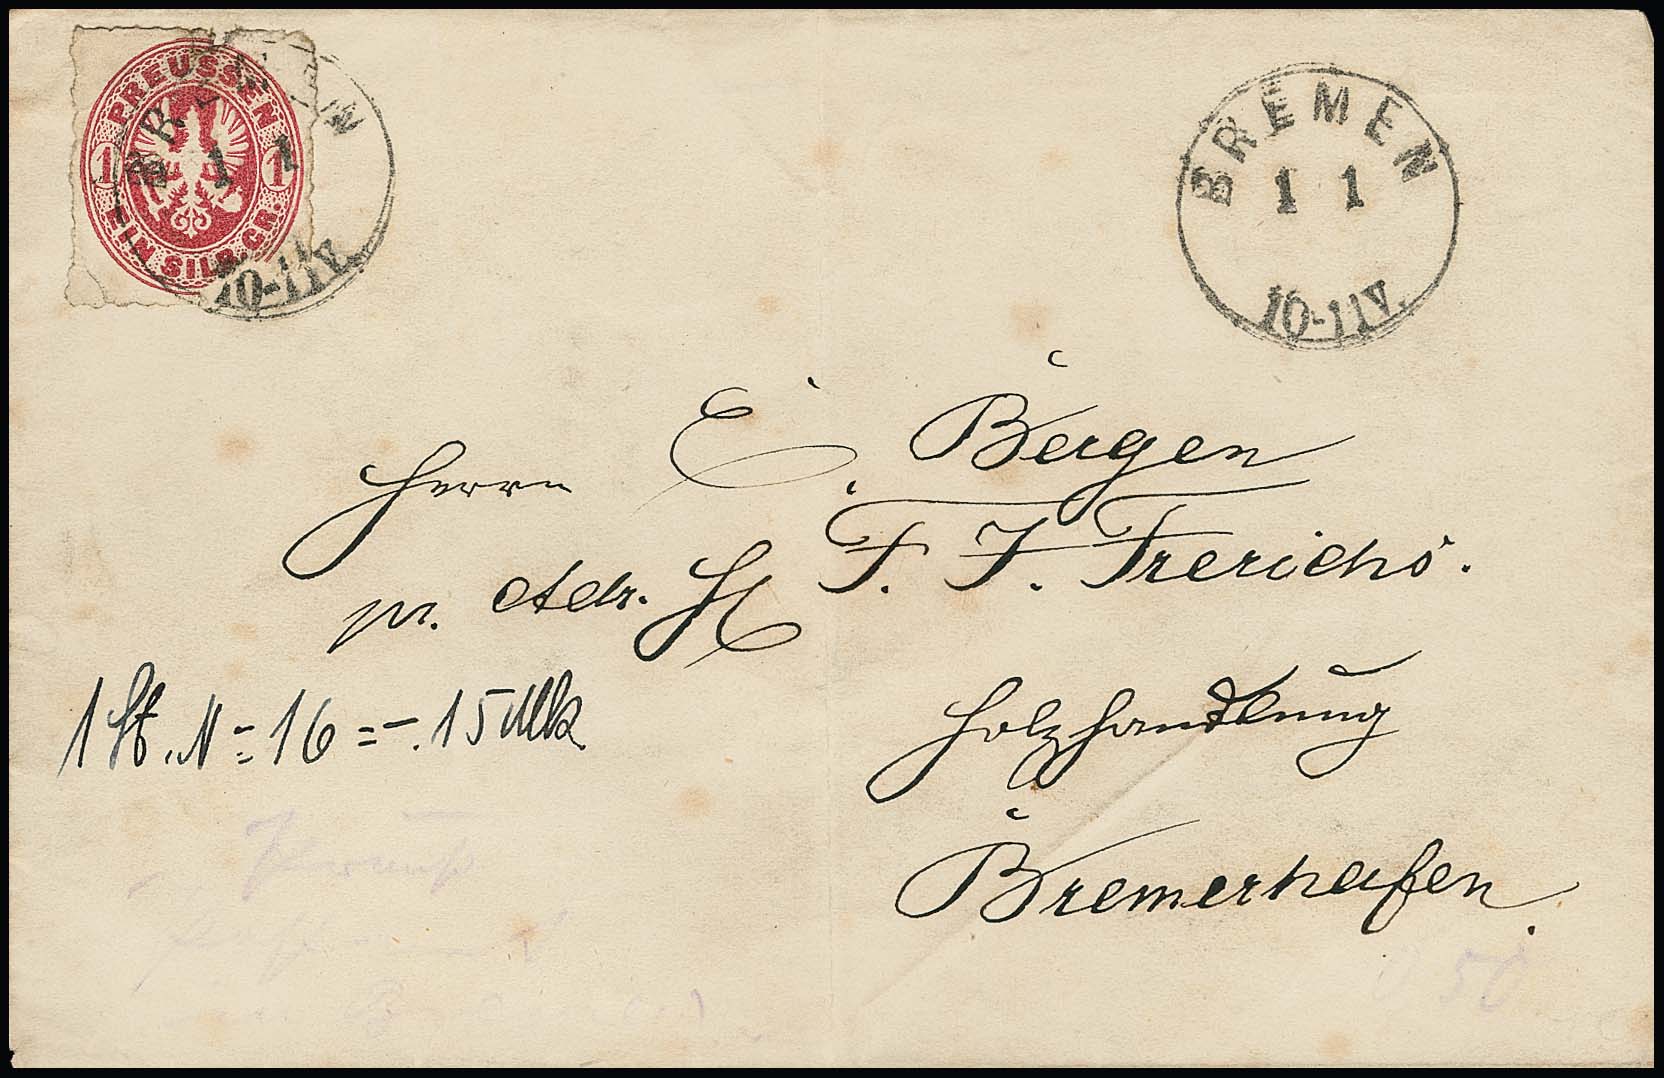 PREUSSEN
1 1
EIN SILB. GR.
BREMEN
1 1
10-11V.
BREMEN
1 1
10-11V.
Herrn E. Bergen
pr. Adr. H F. J. Frerichs.
Holzhandlung
Bremerhafen.
1 St. N = 16 = -.15 Mk
50